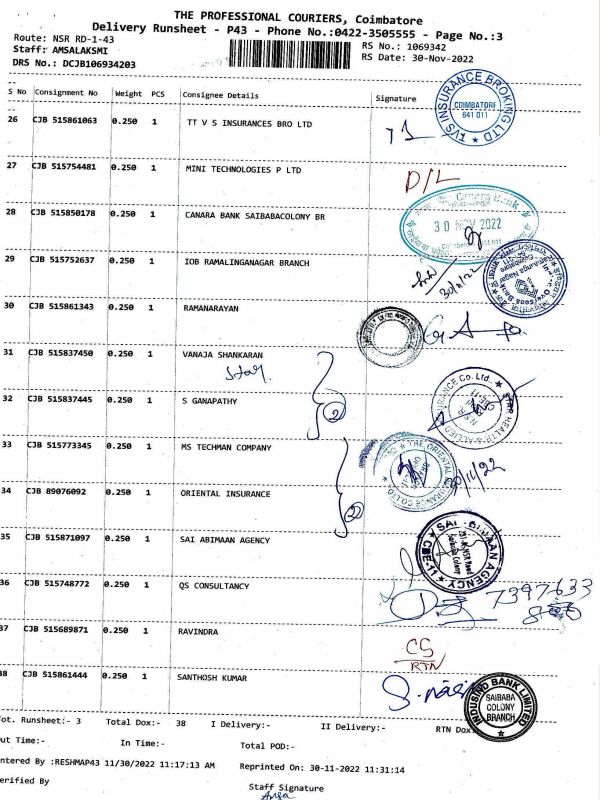 THE PROFESSIONAL COURIERS, Coimbatore
Delivery Runsheet - P43 - Phone No.:0422-3505555 - Page No.:3
Route: NSR RD-1-43 RS No.: 1069342
Staff: AMSALAKSMI RS Date: 30-Nov-2022
DRS No.: DCJB106934203
S No Consignment No Weight PCS Consignee Details Signature
26 CJB 515861063 0.250 1 TT V S INSURANCES BRO LTD
TVS INSURANCE BROKING LTD
COIMBATORE
641 011
27 CJB 515754481 0.250 1 MINI TECHNOLOGIES P LTD D/L
28 CJB 515850178 0.250 1 CANARA BANK SAIBABACOLONY BR
Canara Bank
30 NOV 2022
29 CJB 515752637 0.250 1 IOB RAMALINGANAGAR BRANCH
30/11/22
30 CJB 515861343 0.250 1 RAMANARAYAN
31 CJB 515837450 0.250 1 VANAJA SHANKARAN
Star
32 CJB 515837445 0.250 1 S GANAPATHY
2
STAR HEALTH & ALLIED INSURANCE Co. Ltd.
33 CJB 515773345 0.250 1 MS TECHMAN COMPANY
THE ORIENTAL INSURANCE CO LTD
/11/22
34 CJB 89076092 0.250 1 ORIENTAL INSURANCE
2
35 CJB 515871097 0.250 1 SAI ABIMAAN AGENCY
SAI ABIMAAN AGENCY
CBE-11
NSR Road
Saibaba Colony
36 CJB 515748772 0.250 1 QS CONSULTANCY
7397633
37 CJB 515689871 0.250 1 RAVINDRA
CS
RTN
38 CJB 515861444 0.250 1 SANTHOSH KUMAR
INDUSIND BANK LIMITED
SAIBABA
COLONY
BRANCH
Tot. Runsheet:- 3 Total Dox:- 38 I Delivery:- II Delivery:- RTN Dox
Out Time:- In Time:- Total POD:-
ntered By :RESHMAP43 11/30/2022 11:17:13 AM Reprinted On: 30-11-2022 11:31:14
erified By
Staff Signature